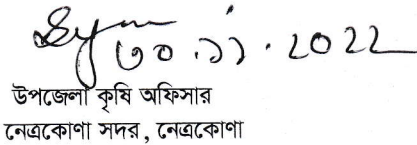 ৩০.১১.2022
উপজেলা কৃষি অফিসার
নেত্রকোণা সদর, নেত্রকোণা